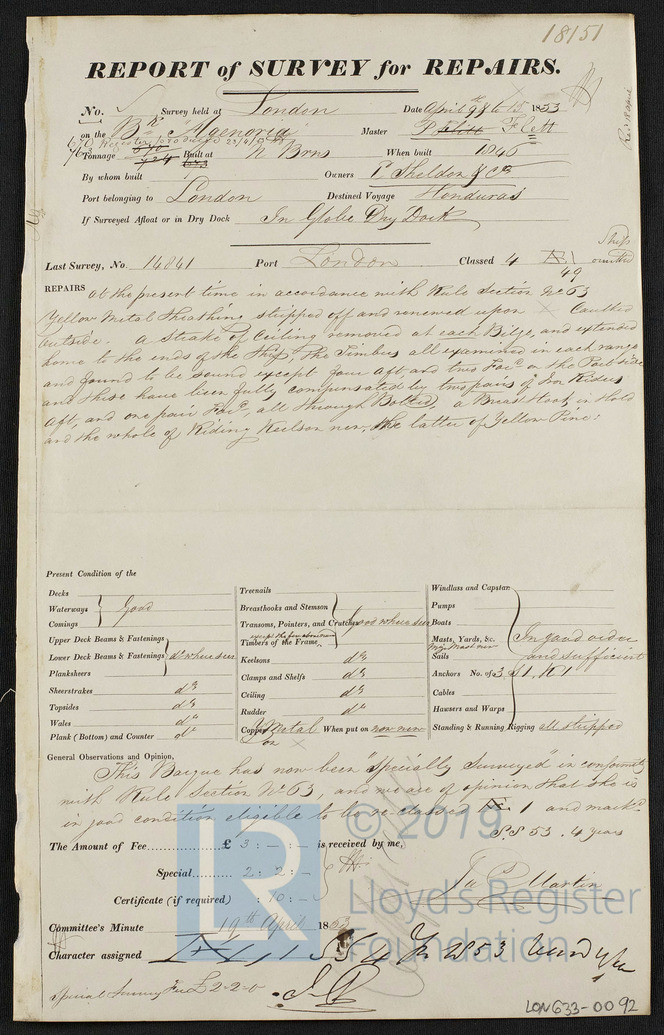 18151
REPORT of SURVEY for REPAIRS.
No. Survey held at London Date April 9th to 15 1853
on the Bk "Agenoria" Master P Flett Flett
Tonnage Built at N Brns When built 1846
By whom built Owners P. Sheldon & Co
Port belonging to London Destined Voyage Honduras
If Surveyed Afloat or in Dry Dock In Globe Dry Dock
Last Survey, No. 14841 Port London Classed 4 Æ 1
49
Ships
REPAIRS at the present time in accordance with Rule Section No 63
Yellow Metal Sheathing stripped off and renewed upon × Caulked
outside. a Strake of Ceiling removed at each Bilge, and extended
home to the ends of the Ship, The Timbers all examined in each range
and found to be sound except four aft, and two For'd on the Port side
and these have been fully compensated by two pairs of Iron Riders
aft, and one pair For'd, all through Bolted, a Breast Hook in Hold
and the whole of Riding Keelson new, the latter of Yellow Pine:
Present Condition of the
Decks
Waterways } Good
Comings
Upper Deck Beams & Fastenings
Lower Deck Beams & Fastenings } do where seen
Planksheers
Sheerstrakes do
Topsides do
Wales do
Plank (Bottom) and Counter do
Treenails
Breasthooks and Stemson
Transoms, Pointers, and Crutches } Good where seen
except the four above named
Timbers of the Frame
Keelsons do
Clamps and Shelfs do
Ceiling do
Rudder do
Copper Y Metal When put on now new
on ×
Windlass and Capstan
Pumps
Boats
Masts, Yards, &c. } In good order
Mizn Mast new
Sails and sufficient
Anchors No. of 3 S 1, K 1
Cables
Hawsers and Warps
Standing & Running Rigging all stripped
General Observations and Opinion,
This Barque has now been "Specially Surveyed" in conformity
with Rule Section No 63, and we are of opinion that she is
in good condition eligible to be re-classed Æ 1 and mark'd
S.S 53. 4 years
The Amount of Fee £ 3 : — : — is received by me,
Special 2 : 2 : —
Certificate (if required) : 10 : —
Jas P Martin
Committee's Minute 19th April 1853
Character assigned
Special Survey Fee £2-2-0
LON633-0092
LR
© 2019
Lloyd's Register
Foundation